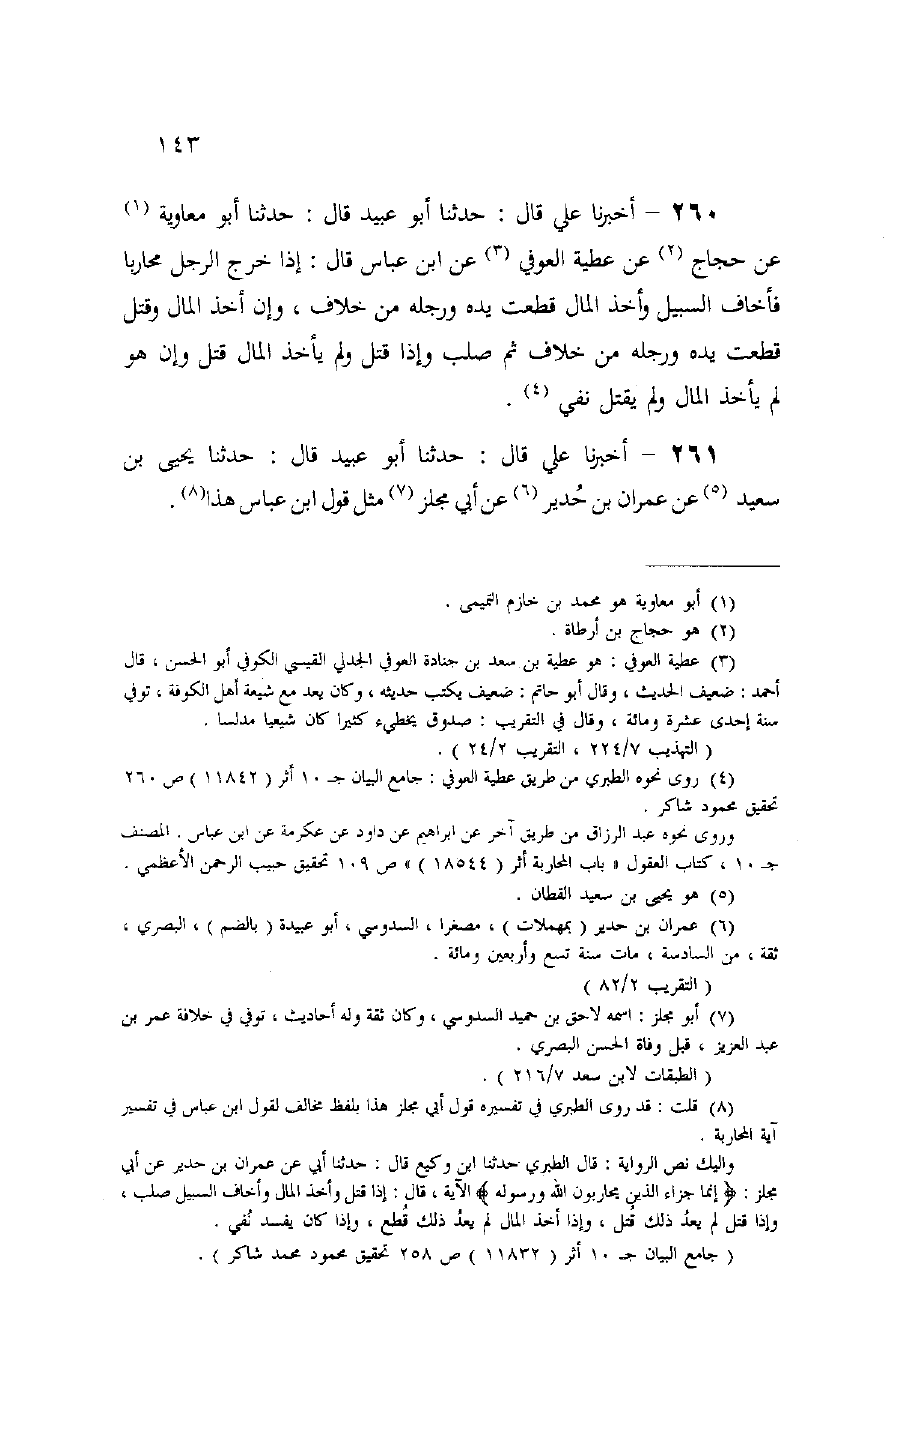 ١٤٣
٢٦٠ – أخبرنا علي قال : حدثنا أبو عبيد قال : حدثنا أبو معاوية (١)
عن حجاج (٢) عن عطية العوفي (٣) عن ابن عباس قال : إذا خرج الرجل محاربا
فأخاف السبيل وأخذ المال قطعت يده ورجله من خلاف ، وإن أخذ المال وقتل
قطعت يده ورجله من خلاف ثم صلب وإذا قتل ولم يأخذ المال قتل وإن هو
لم يأخذ المال ولم يقتل نفي (٤) .
٢٦١ – أخبرنا علي قال : حدثنا أبو عبيد قال : حدثنا يحيى بن
سعيد (٥) عن عمران بن حُدير (٦) عن أبي مجلز (٧) مثل قول ابن عباس هذا(٨) .
(١) أبو معاوية هو محمد بن خازم التميمى .
(٢) هو حجاج بن أرطاة .
(٣) عطية العوفي : هو عطية بن سعد بن جنادة العوفي الجدلي القيسي الكوفي أبو الحسن ، قال
أحمد : ضعيف الحديث ، وقال أبو حاتم : ضعيف يكتب حديثه ، وكان يعد مع شيعة أهل الكوفة ، توفي
سنة إحدى عشرة ومائة ، وقال في التقريب : صدوق يخطيء كثيرا كان شيعيا مدلسا .
( التهذيب ٢٢٤/٧ ، التقريب ٢٤/٢ ) .
(٤) روى نحوه الطبري من طريق عطية العوفي : جامع البيان جـ ١٠ أثر ( ١١٨٤٢ ) ص ٢٦٠
تحقيق محمود شاكر .
وروى نحوه عبد الرزاق من طريق آخر عن ابراهيم عن داود عن عكرمة عن ابن عباس . المصنف
جـ ١٠ ، كتاب العقول « باب المحاربة أثر ( ١٨٥٤٤ ) » ص ١٠٩ تحقيق حبيب الرحمن الأعظمي .
(٥) هو يحيى بن سعيد القطان .
(٦) عمران بن حدير ( بمهملات ) ، مصغرا ، السدوسي ، أبو عبيدة ( بالضم ) ، البصري ،
ثقة ، من السادسة ، مات سنة تسع وأربعين ومائة .
( التقريب ٨٢/٢ )
(٧) أبو مجلز : اسمه لاحق بن حميد السدوسي ، وكان ثقة وله أحاديث ، توفي في خلافة عمر بن
عبد العزيز ، قبل وفاة الحسن البصري .
( الطبقات لابن سعد ٢١٦/٧ ) .
(٨) قلت : قد روى الطبري في تفسيره قول أبي مجلز هذا بلفظ مخالف لقول ابن عباس في تفسير
آية المحاربة .
واليك نص الرواية : قال الطبري حدثنا ابن وكيع قال : حدثنا أبي عن عمران بن حدير عن أبي
مجلز : ﴿ إنما جزاء الذين يحاربون الله ورسوله ﴾ الآية ، قال : إذا قتل وأخذ المال وأخاف السبيل صلب ،
وإذا قتل لم يعدُ ذلك قُتل ، وإذا أخذ المال لم يعدُ ذلك قُطع ، وإذا كان يفسد نُفي .
( جامع البيان جـ ١٠ أثر ( ١١٨٣٢ ) ص ٢٥٨ تحقيق محمود محمد شاكر ) .